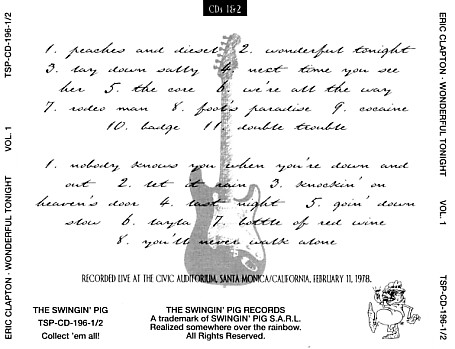 CDs 1&2
1. peaches and diesel 2. wonderful tonight
3. lay down sally 4. next time you see
her 5. the core 6. we're all the way
7. rodeo man 8. fool's paradise 9. cocaine
10. badge 11. double trouble
1. nobody knows you when you're down and
out 2. let it rain 3. knockin' on
heaven's door 4. last night 5. goin' down
slow 6. layla 7. bottle of red wine
8. you'll never walk alone
RECORDED LIVE AT THE CIVIC AUDITORIUM, SANTA MONICA/CALIFORNIA, FEBRUARY 11, 1978.
THE SWINGIN' PIG
TSP-CD-196-1/2
Collect 'em all!
THE SWINGIN' PIG RECORDS
A trademark of SWINGIN' PIG S.A.R.L.
Realized somewhere over the rainbow.
All Rights Reserved.
ERIC CLAPTON · WONDERFUL TONIGHT VOL. 1 TSP-CD-196-1/2
ERIC CLAPTON · WONDERFUL TONIGHT VOL. 1 TSP-CD-196-1/2